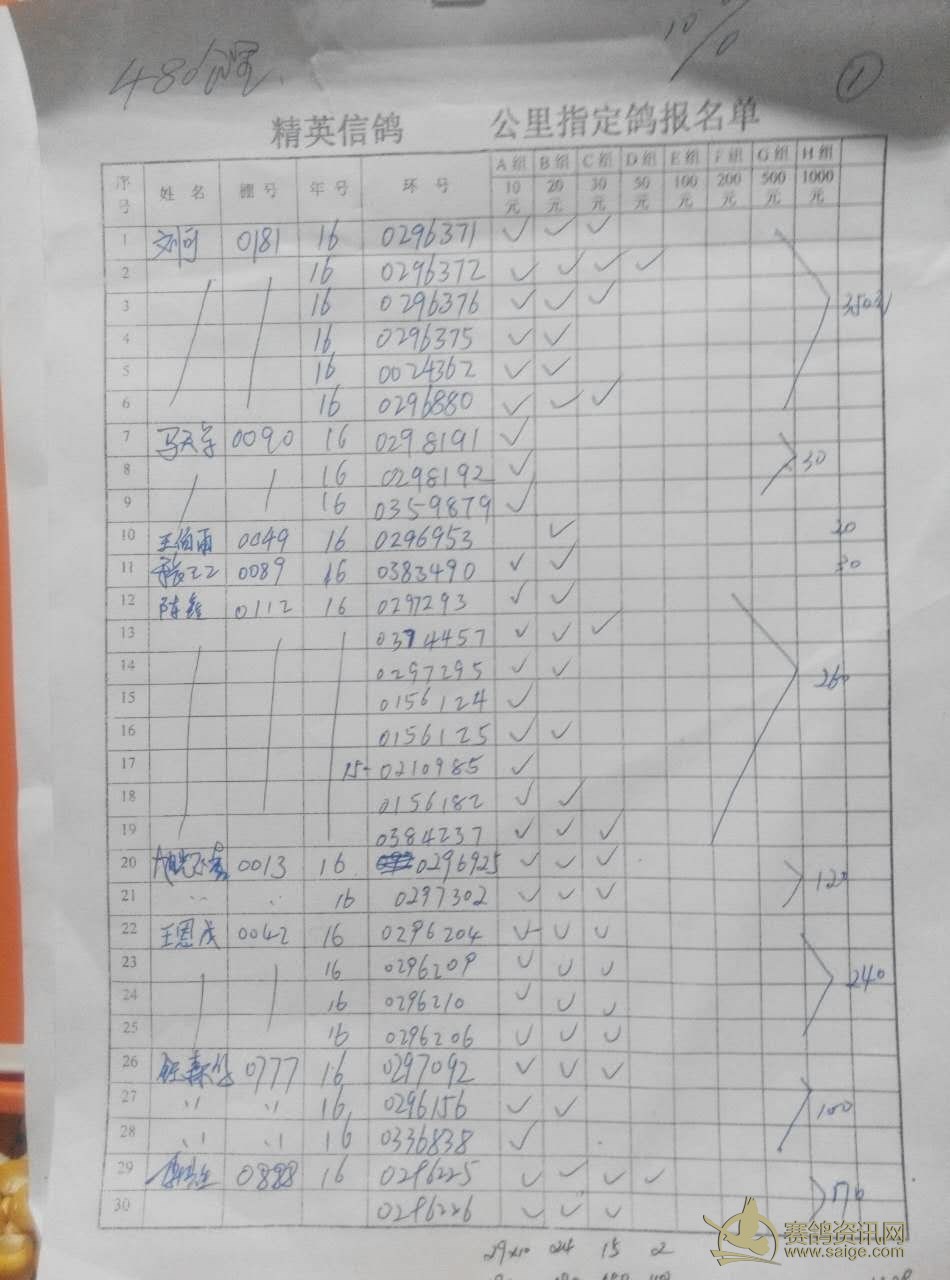 10%
480
①
精英信鸽 公里指定鸽报名单
序号 姓名 棚号 年号 环号 A组10元 B组20元 C组30元 D组50元 E组100元 F组200元 G组500元 H组1000元
1 刘可 0181 16 0296371 ✓ ✓ ✓
2 16 0296372 ✓ ✓ ✓ ✓
3 16 0296376 ✓ ✓ ✓ 350
4 16 0296375 ✓ ✓
5 16 0024362 ✓ ✓
6 16 0296880 ✓ ✓ ✓
7 0090 16 0298191 ✓
8 16 0298192 ✓ 30
9 16 0359879 ✓
10 王伯雨 0049 16 0296953 ✓ 20
11 0089 16 0383490 ✓ ✓ 30
12 陈鑫 0112 16 0297293 ✓ ✓
13 0394457 ✓ ✓ ✓
14 0297295 ✓ ✓ 260
15 0156124 ✓
16 0156125 ✓ ✓
17 15- 0210985 ✓
18 0156182 ✓ ✓
19 0384237 ✓ ✓ ✓
20 0013 16 0296925 ✓ ✓ ✓ 120
21 16 0297302 ✓ ✓ ✓
22 王恩成 0042 16 0296204 ✓ ✓ ✓
23 16 0296209 ✓ ✓ ✓ 240
24 16 0296210 ✓ ✓ ✓
25 16 0296206 ✓ ✓ ✓
26 0777 16 0297092 ✓ ✓ ✓
27 16 0296156 ✓ ✓ 100
28 16 0336838 ✓
29 0888 16 0296225 ✓ ✓ ✓ ✓
30 0296226 ✓ ✓ ✓ 170
29×10 24 15 2
赛鸽资讯网
www.saige.com